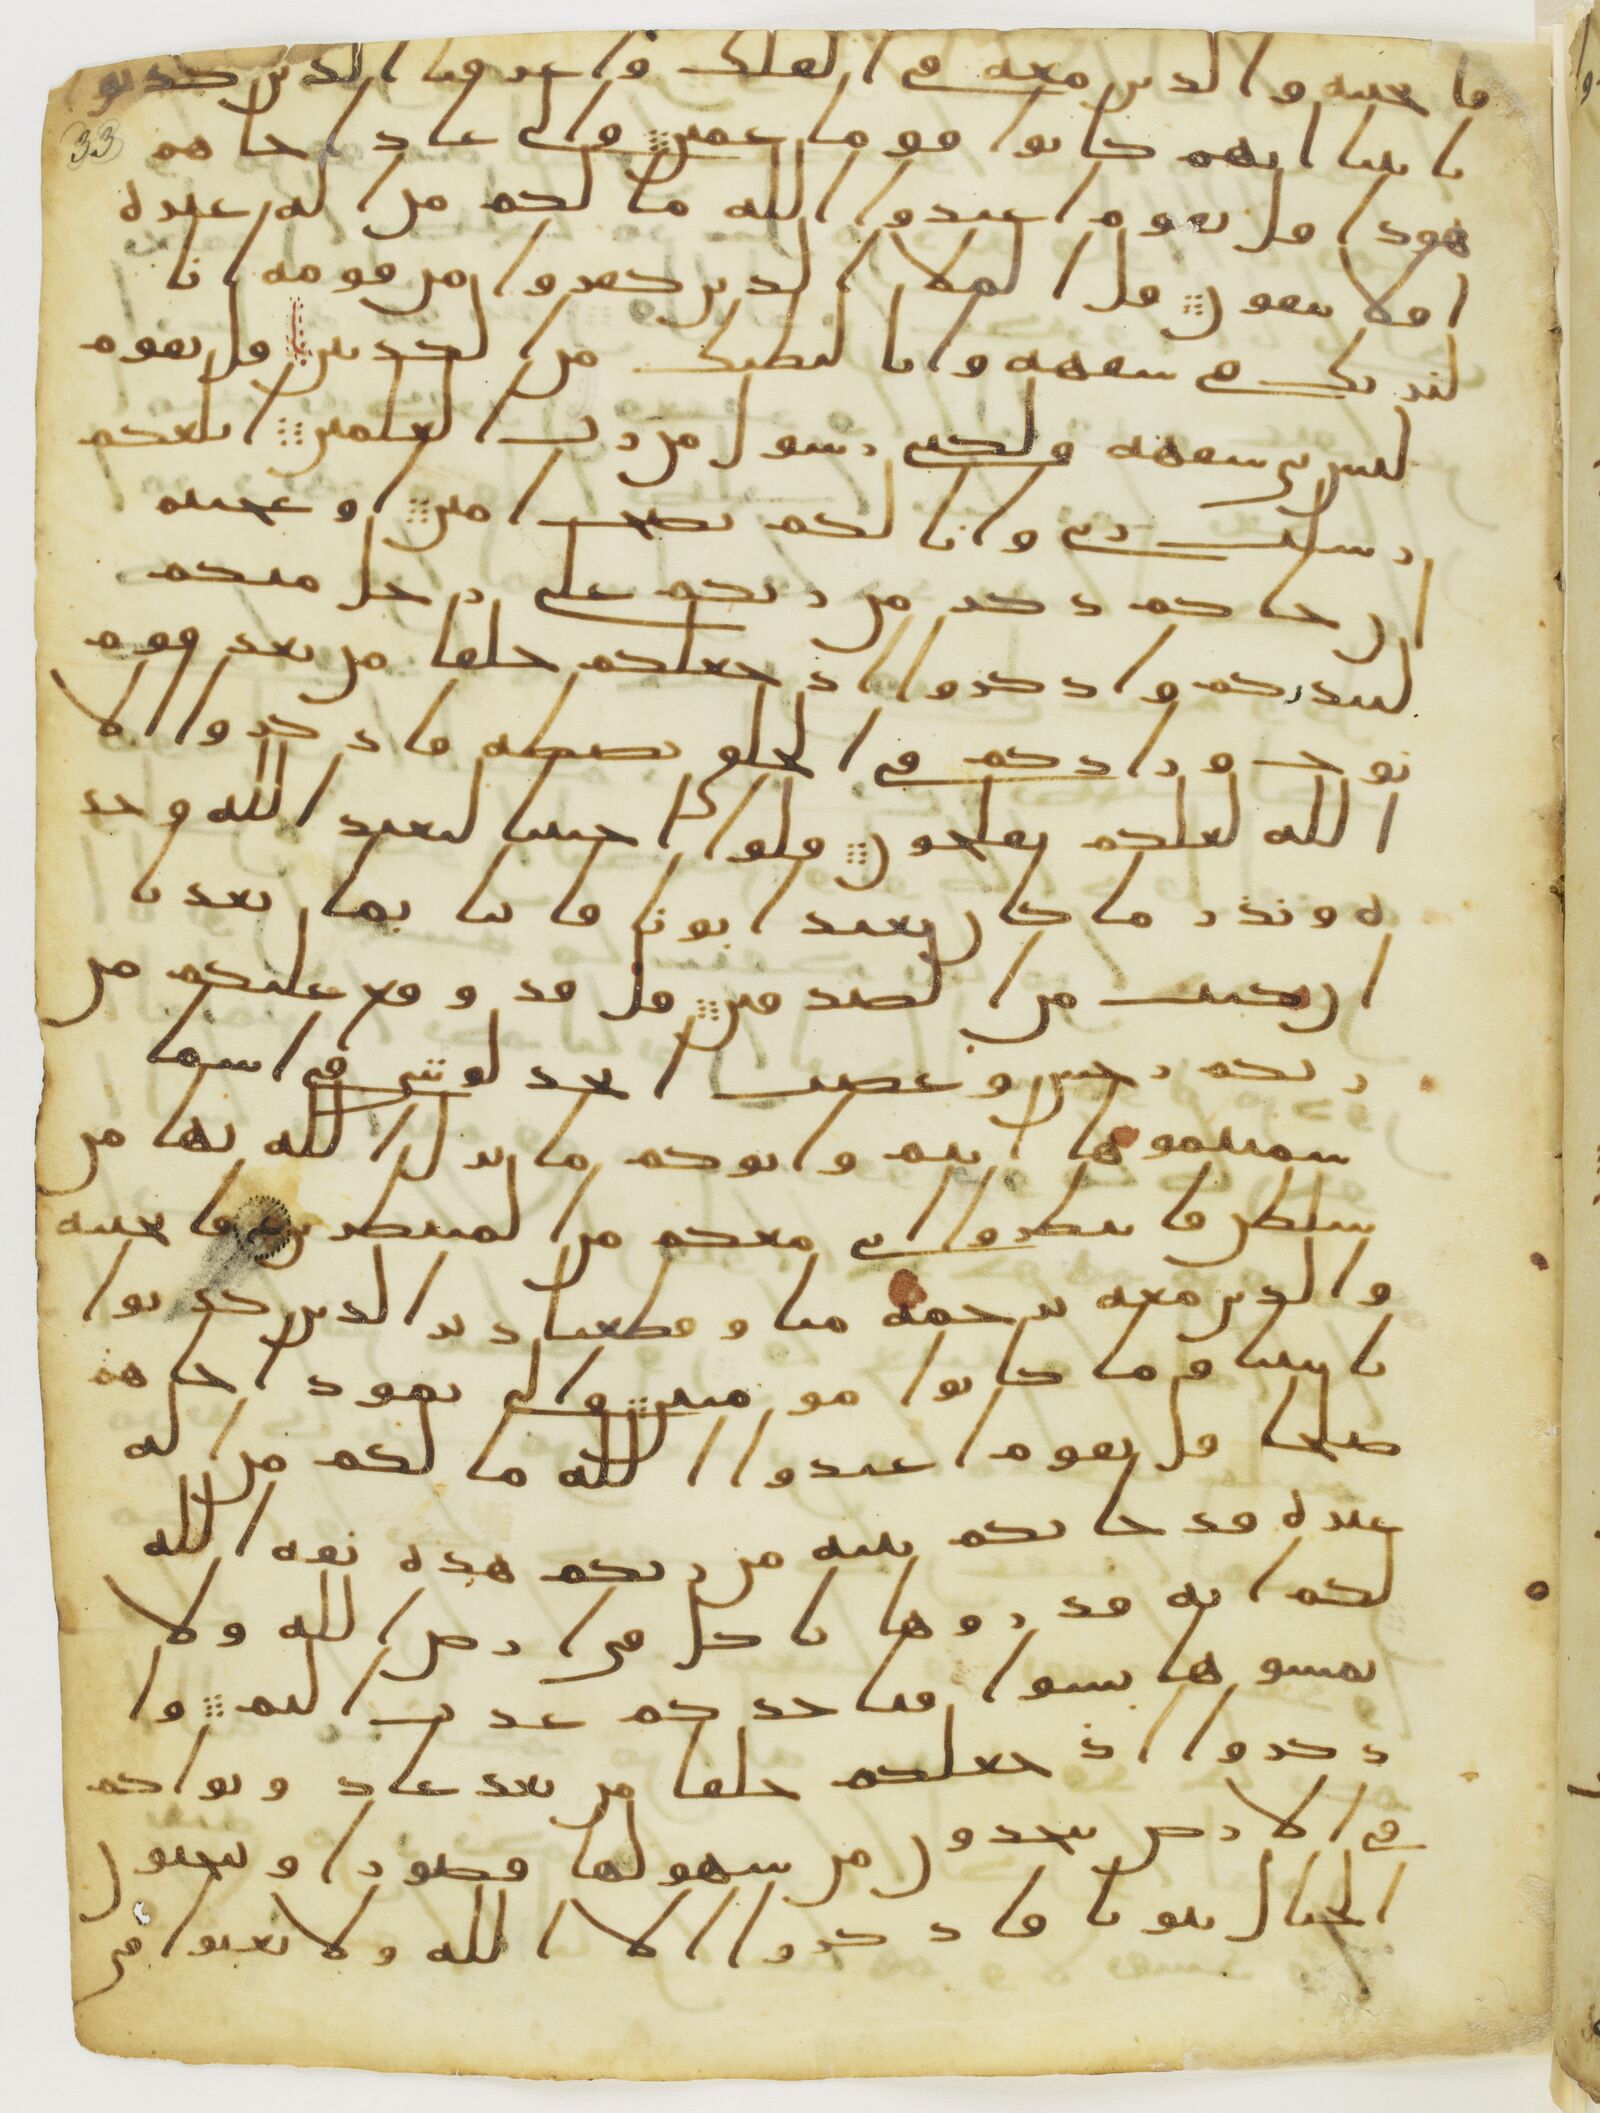 فانجينه والذين معه في الفلك واغرقنا الذين كذبوا
33
بايتنا انهم كانوا قوما عمين والى عاد اخاهم
هودا قل يقوم اعبدوا الله ما لكم من اله غيره
افلا تتقون قل الملا الذين كفروا من قومه انا
لنريك في سفهه وانا لنظنك من الكذبين قل يقوم
ليس بي سفهه ولكني رسول من رب العلمين ابلغكم
رسلت ربي وانا لكم نصح امين اوعجبتم
ان جاكم ذكر من ربكم على رجل منكم
لينذركم واذكروا اذ جعلكم خلفا من بعد قوم
نوح وزادكم في الخلق بصطه فاذكروا الا
الله لعلكم تفلحون قلوا اجيتنا لنعبد الله وحد
ه ونذر ما كان يعبد ابونا فاتنا بما تعدنا
ان كنت من الصدقين قل قد وقع عليكم من
ربكم رجس وغضب اتجدلونني في اسما
سميتموها انتم وابوكم ما نزل الله بها من
سلطن فانتظروا اني معكم من المنتظرين فانجينه
والذين معه برحمه منا وقطعنا دبر الذين كذبوا
بايتنا وما كانوا مومنين والى ثمود اخاهم
صلحا قل يقوم اعبدوا الله ما لكم من اله
غيره قد جاتكم بينه من ربكم هذه نقه الله
لكم ايه فذروها تاكل في ارض الله ولا
تمسوها بسوا فياخذكم عذب اليم وا
ذكروا اذ جعلكم خلفا من بعد عاد وبواكم
في الارض تتخذون من سهولها قصورا وتنحتون
الجبال بيوتا فاذكروا الا الله ولا تعثوا في